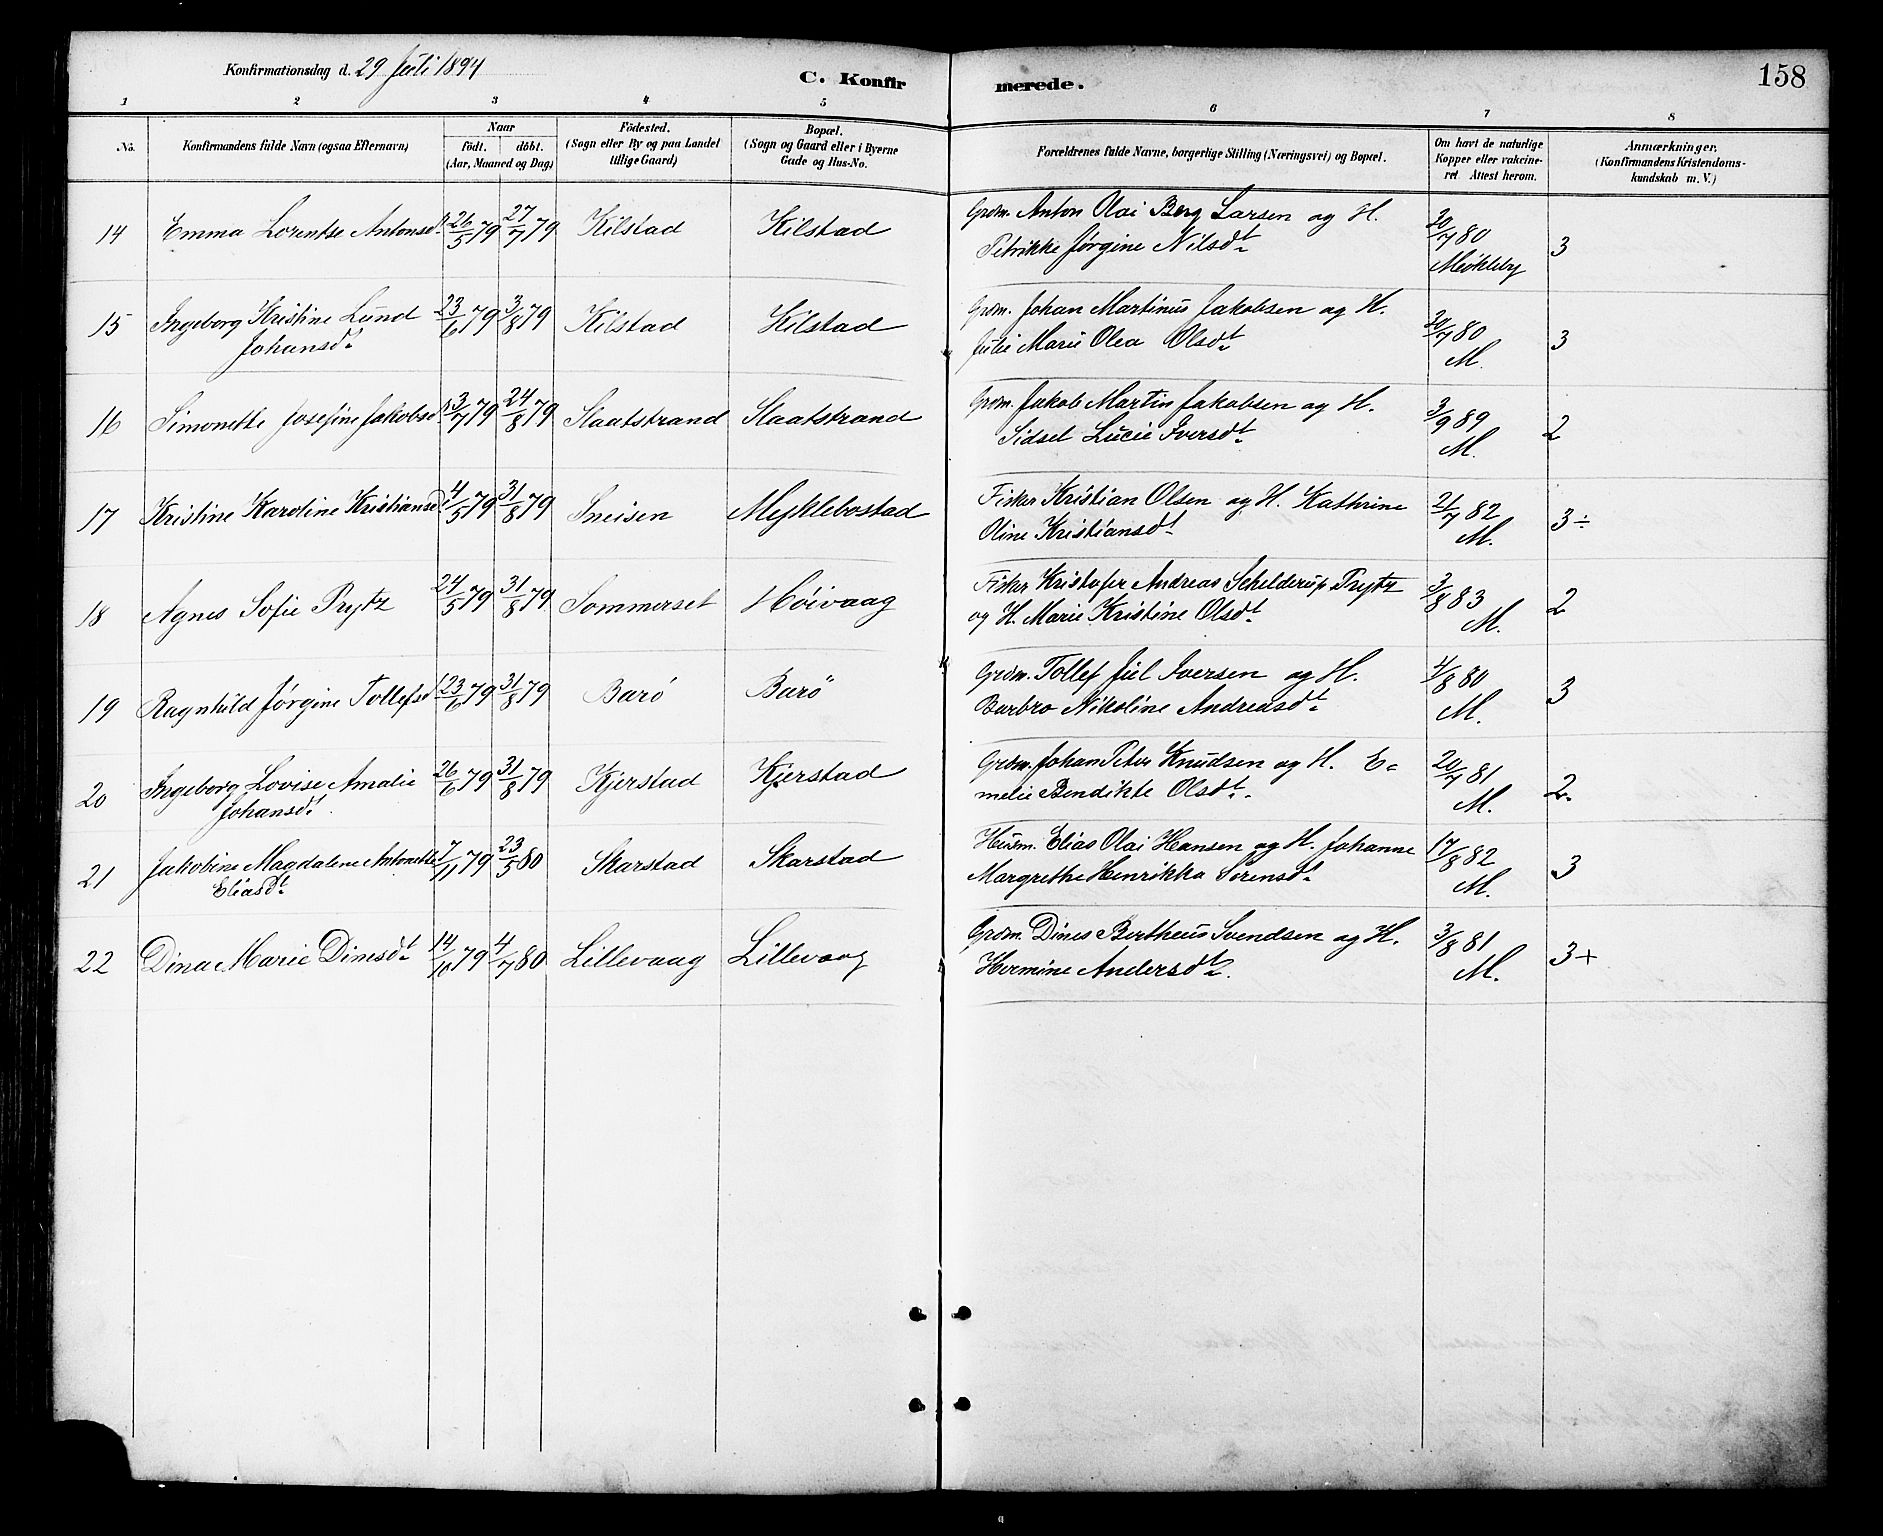 Konfirmationsdag d. 29 Juli 1894
C. Konfirmerede.
158
1 2 3 4 5 6 7 8
No. Konfirmandens fulde Navn (ogsaa Efternavn) Naar födt. döbt. (Aar, Maaned og Dag) Födested. (Sogn eller By og paa Landet tillige Gaard) Bopæl. (Sogn og Gaard eller i Byerne Gade og Hus-No. Forældrenes fulde Navne, borgerlige Stilling (Næringsvei) og Bopæl. Om havt de naturlige Kopper eller vakcineret. Attest herom. Anmærkninger. (Konfirmandens Kristendomskundskab m. V.)
14 Emma Lorentse Antonsdt 26/5 79 27/7 79 Kilstad Kilstad Grdm. Anton Olai Berg Larsen og H. 30/7 80 3
Petrikke Jørgine Nilsdt Meökleby
15 Ingeborg Kristine Lund 23/6 79 3/8 79 Kilstad Kilstad Grdm. Johan Martinus Jakobsen og H. 30/7 80 3
Johansdt Julie Marie Olea Olsdt M.
16 Simonette Josefine Jakobsdt 3/7 79 24/8 79 Slaatstrand Slaatstrand Grdm. Jakob Martin Jakobsen og H. 3/9 89 2
Sidsel Lucie Iversdt M.
17 Kristine Karoline Kristiansdt 4/5 79 31/8 79 Sneisen Myklebostad Fisker Kristian Olsen og H. Kathrine 21/7 82 3÷
Oline Kristiansdt M.
18 Agnes Sofie Prytz 24/5 79 31/8 79 Sommerset Höivaag Fisker Kristofer Andreas Schelderup Prytz 3/8 83 2
og H. Marie Kristine Olsdt M.
19 Ragnhild Jørgine Tollefsdt 23/6 79 31/8 79 Barö Barö Grdm. Tollef Juel Iversen og H. 4/8 80 3
Barbro Nikoline Andreasdt M.
20 Ingeborg Lovise Amalie 26/6 79 31/8 79 Kjerstad Kjerstad Grdm. Johan Peter Knudsen og H. E= 20/7 81 2.
Johansdt melie Bendikte Olsdt M.
21 Jakobine Magdalene Antonette 7/11 79 23/5 80 Skarstad Skarstad Husm. Elias Olai Hansen og H. Johanne 17/8 82 3
Eliasdt Margrethe Henrikka Sørensdt M.
22 Dina Marie Dinesdt 14/10 79 4/7 80 Lillevaag Lillevaag Grdm. Dines Bertheus Svendsen og H. 3/8 81 3+
Hermine Andersdt M.